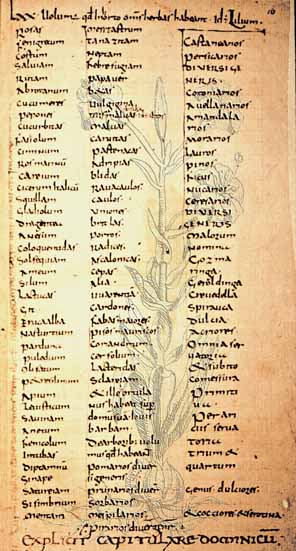 LXX Uolumus qd In horto omes herbas habeant. Id: Lilium.
Rosas
Fenigrecum
Costum
Saluiam
Rutam
Abrotanum
Cucumeres
Pepones
Cucurbitas
Fasiolum
Ciminum
Ros marinum
Careium
Cicerum Italicum
Squillam
Gladiolum
Dragantea
Anesum
Coloquentidas
Solsequiam
Ameum
Silum
Lactucas
Git
Eruca alba
Nasturtium
parduna
puledium
Olisatum
petresilinum
Apium
Leuisticum
Sauinam
Anetum
Fenicolum
Intubas
Diptamnum
Sinape
Satureiam
Sisimbrium
Mentam
Mentastrum
Tanazitam
Neptam
Febrefugiam
papauer
betas
Uulgigina
Maluas
Caruitas
pastenacas
Adripias
blidas
Rauacaulos
Caulos
Uniones
britlas
Porros
Radices
Ascalonicas
cepas
Alia
Uuarentia
Cardones
fabas maiores
pisos mauriscos
Coriandrum
Cerfolium
Lacteridas
Sclareiam
&ille ortula
domum sua Iouis
barbam
De arboribus uolu
mus qd habeant
Pomarios diuer
sigeneris
prunarios diuer
Sorbarios
mespilarios
pirarios diuer gene
Castanearios
persicarios
DIVERSI GE
NERIS
Cotoniarios
Auellanarios
Amandala
rios
Morarios
Lauros
pinos
Ficus
Nucarios
Ceresarios
DIVERSI
GENERIS
Malorum
Nomina
Gozma
ringa
Geroldinga
Creuedella
Spirauca
Dulcia
Acriores
Omnia ser
uatoria
&subito
comessura
Primiti
ua
Perari
ciis serua
toria
trium &
quartum
genus. dulciores
&cocciores &serotina
EXPLICIT CAPITULARE DOMINICUM